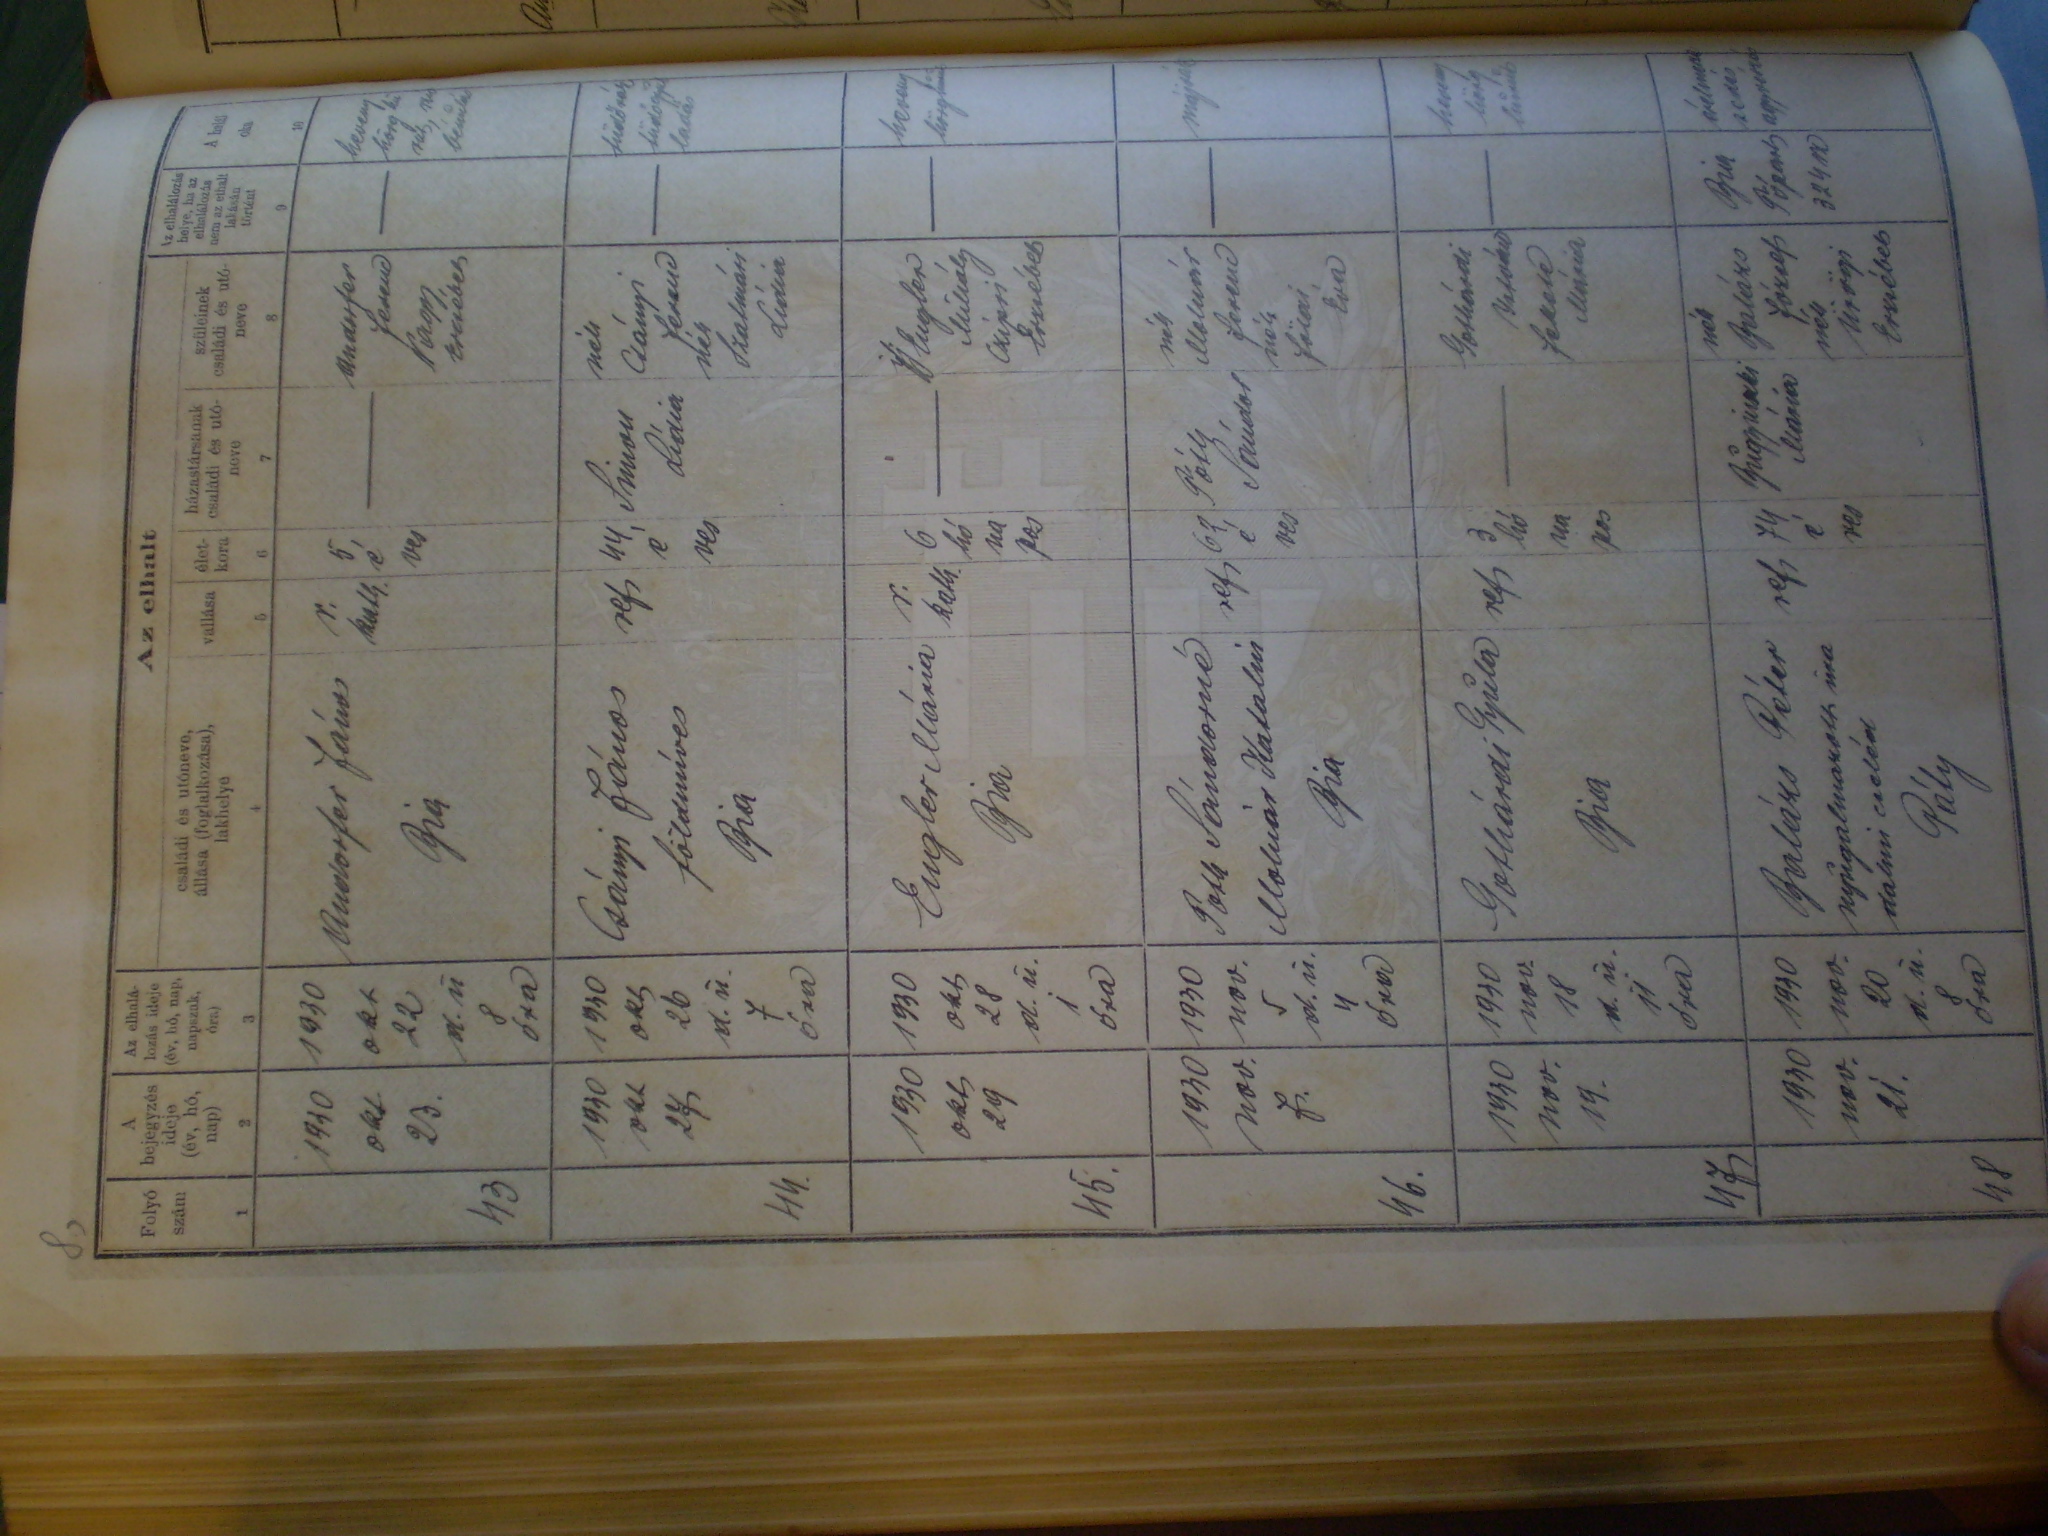 8,
Az elhalt
Folyó
szám
A
bejegyzés
ideje
(év, hó,
nap)
Az elhalá-
lozás ideje
(év, hó, nap,
napszak,
óra)
családi és utóneve,
állása (foglalkozása),
lakhelye
vallása
élet-
kora
házastársának
családi és utó-
neve
szüleinek
családi és utó-
neve
Az elhalálozás
helye, ha az
elhalálozás
nem az elhalt
lakásán
történt
A halál
oka
1
2
3
4
5
6
7
8
9
10
43
1930
okt.
23.
1930
okt
22
d. ü
8
óra
János
Bia
r.
kath.
5
é
ves
Ferenc
Erzsébet
heveny
44.
1930
okt
27
1930
okt
26
d. ü.
7
óra
Csányi János
földmíves
Bia
ref
44
é
ves
Simon
Lídia
néh
Csányi
Ferenc
néh
Szalmási
Lídia
45.
1930
okt
29
1930
okt
28
d. ü.
1
óra
Engler Mária
Bia
r.
kath.
6
hó
na
pos
Engler
Mihály
Erzsébet
heveny
46.
1930
nov.
7.
1930
nov.
5
d. ü.
4
óra
Póth Sándorné
Molnár Katalin
Bia
ref
63
é
ves
Póth
Sándor
néh
Molnár
Ferenc
néh
Éva
májrák
47
1930
nov.
19.
1930
nov.
18
d. ü.
11
óra
Gothárdi Gyula
Bia
ref
3
hó
na
pos
Gothárdi
Fekete
Mária
heveny
48
1930
nov.
21.
1930
nov.
20
d. ü.
8
óra
Balázs Péter
nyugalmazott ura
dalmi cseléd
Páty
ref
74
é
ves
Mária
néh
Balázs
József
néh
Ürögi
Erzsébet
Bia